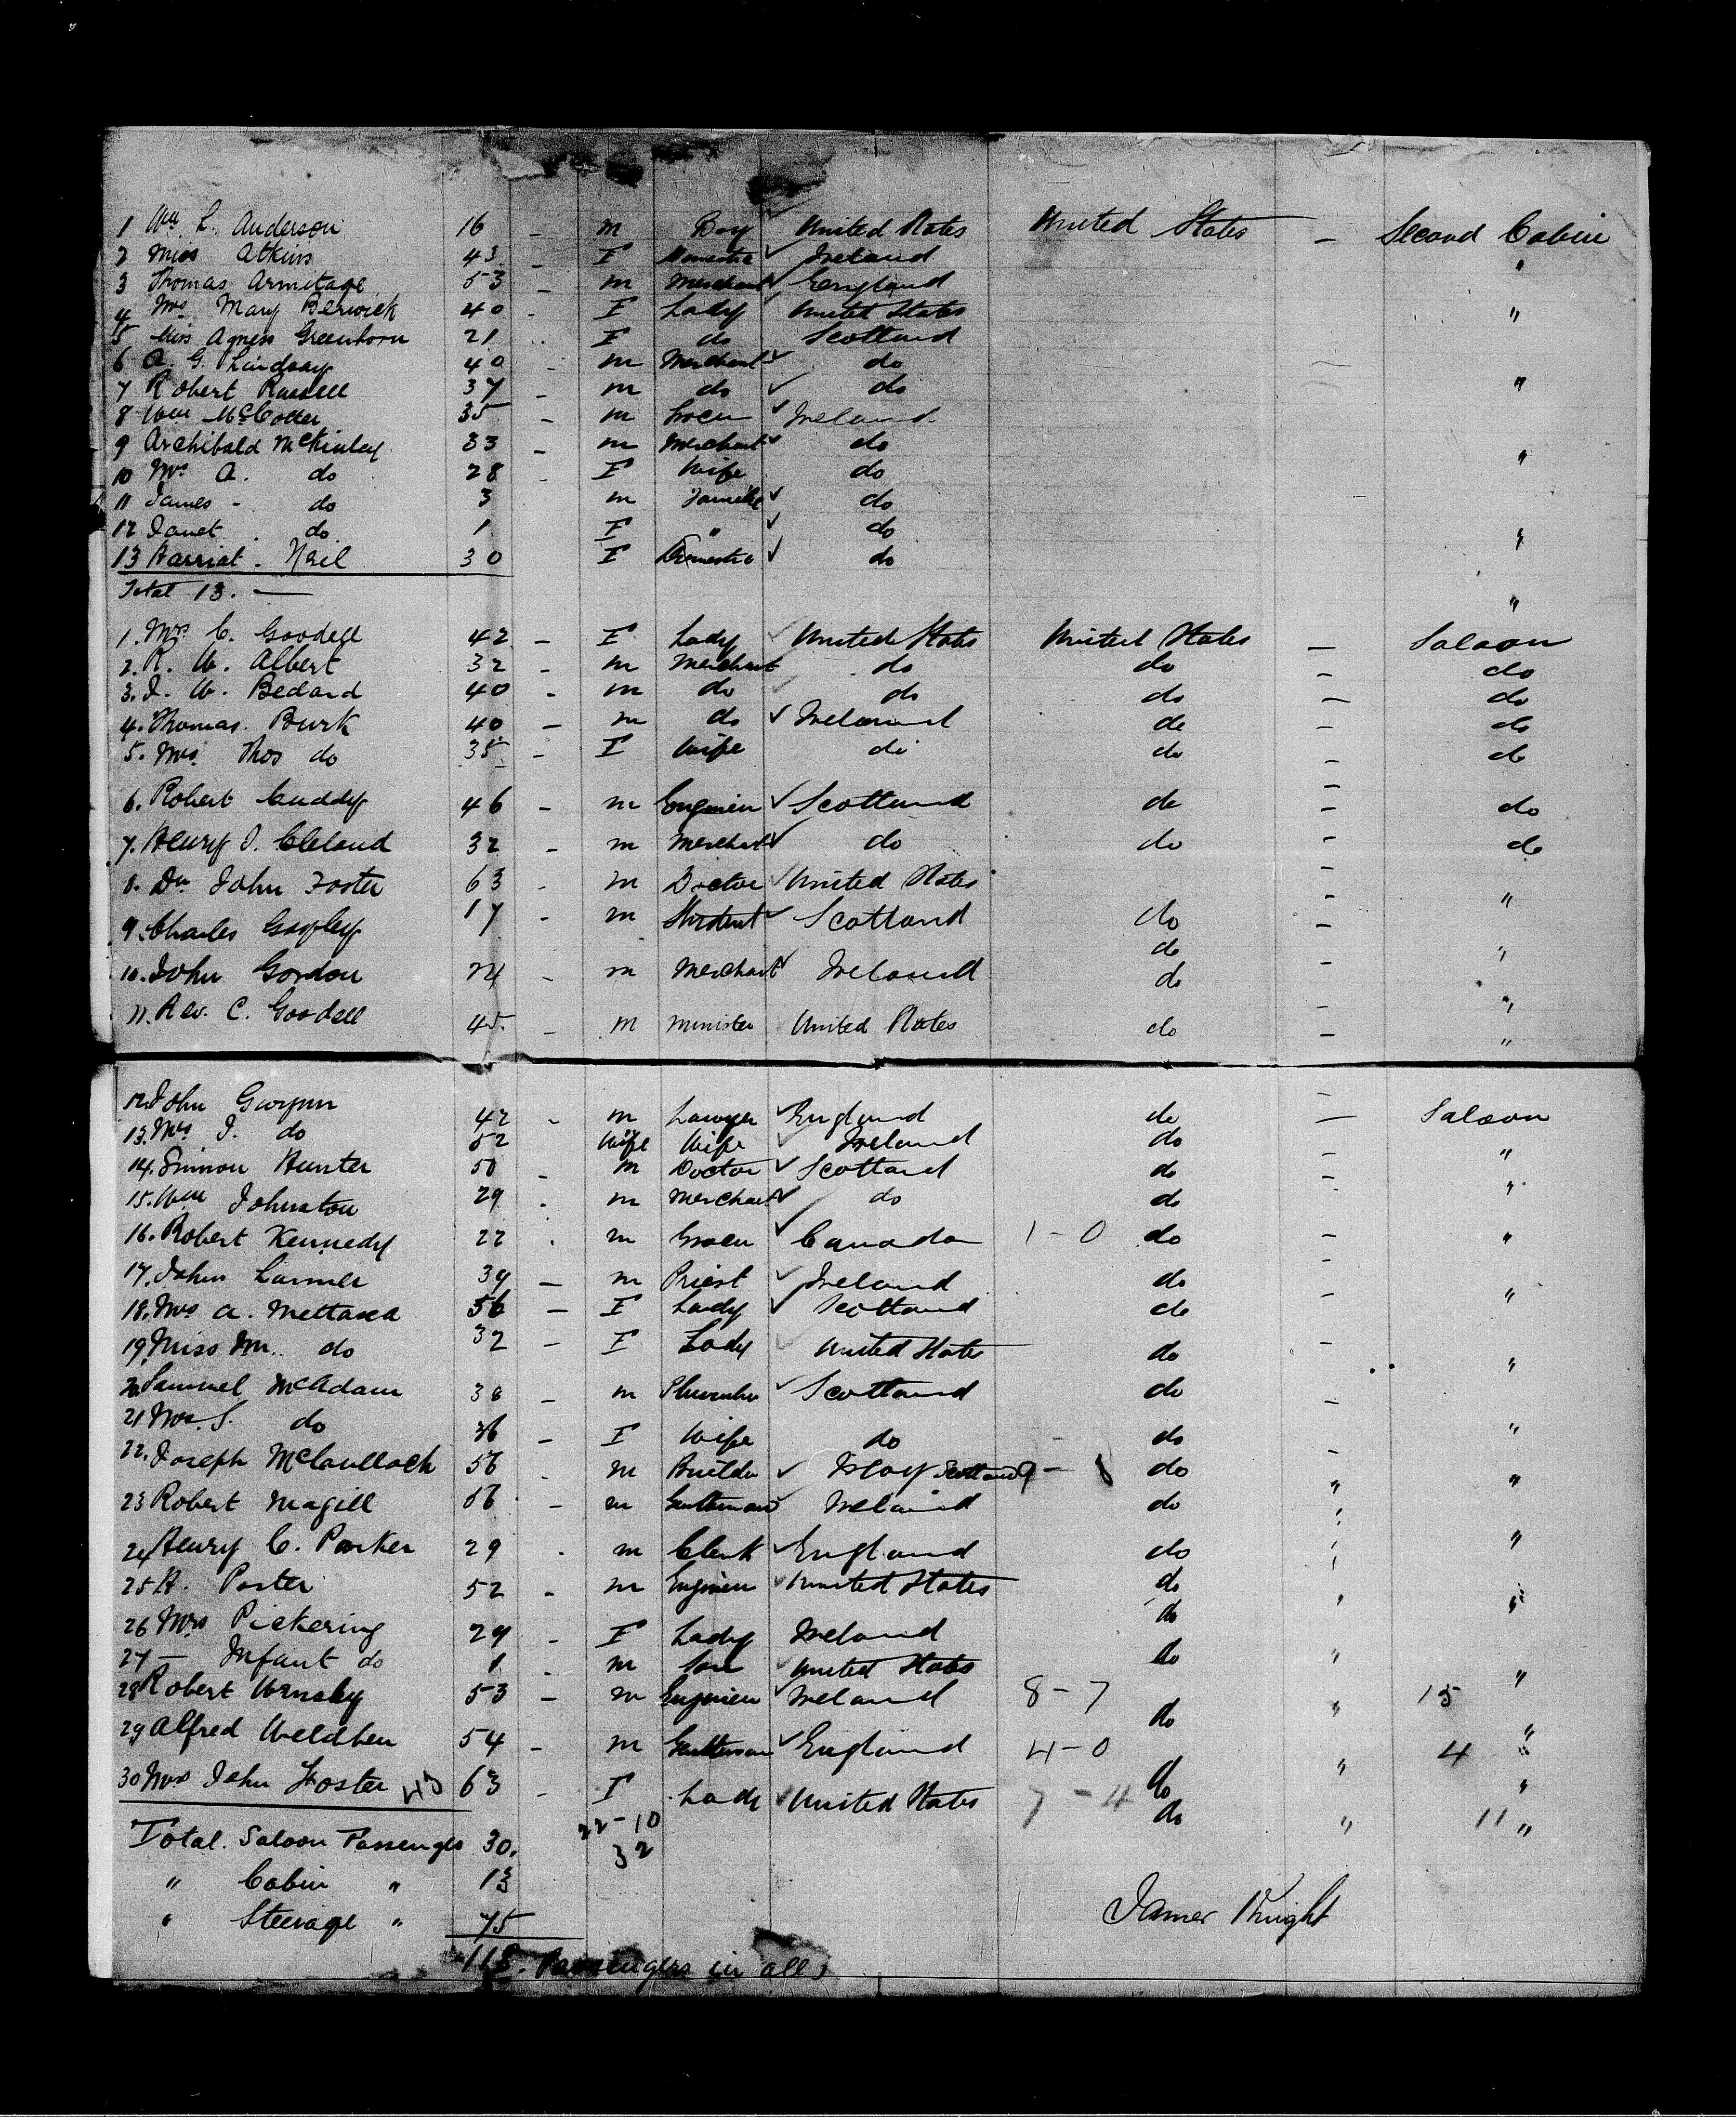 1 Wm L. Anderson 16 - m Boy United States United States - Second Cabin
2 Miss Atkins 43 - F Domestic Ireland "
3 Thomas Armitage 53 - m Merchant England
4 Mrs Mary Berwick 40 - F Lady United States "
5 Miss Agness Greenhorn 21 - F do Scotland
6 A. G. Lindsay 40 - m Merchant do
7 Robert Russell 37 - m do do "
8 Wm McCotter 35 - m Ireland
9 Archibald McKinley 33 - m Merchant do
10 Mrs A. do 28 - F Wife do "
11 James - do 3 m do
12 Janet do 1 F " do "
13 Harriat Neil 30 F Domestic do
Total 13. — "
1. Mrs C. Goodell 42 - F Lady United States United States - Saloon
2. R. W. Albert 32 - m Merchant do do - do
3. J. W. Bedard 40 - m do do do - do
4. Thomas Burk 40 - m do Ireland do - do
5. Mrs Thos do 35 - F Wife do do - do
6. Robert Cuddy 46 - m Engineer Scotland do - do
7. Henry J. Cleland 32 - m Merchant do do - do
8. Dr John Foster 63 - m Doctor United States - "
9. Charles 17 - m Student Scotland do - "
do
10. John Gordon 24 - m Merchant Ireland do - "
11. Rev. C. Goodell 45. - m Minister United States do - "
12. John 42 - m Lawyer England do - Saloon
13. Mrs J. do 52 Wife Wife Ireland do - "
14. Simon Hunter 50 - m Doctor Scotland do - "
15. Wm Johnston 29 - m Merchant do do
16. Robert Kennedy 22 - m Grocer Canada 1-0 do - "
17. John Larmer 39 - m Priest Ireland do -
18. Mrs A. Mettaxa 56 - F Lady Scotland do - "
19. Miss M. do 32 - F Lady United States do - "
20. Samuel McAdam 38 - m Plumber Scotland do -
21 Mrs S. do 36 - F Wife do do - "
22. Joseph McCaulloch 56 - m Builder Islay Scotland 9- do " "
23 Robert Magill 56 - m Gentleman Ireland do "
24 Henry C. Parker 29 - m Clerk England do "
25 H. Porter 52 - m Engineer United States do " "
do
26 Mrs Pickering 29 - F Lady Ireland
27 — Infant do 1 - m United States do " "
28 Robert 53 - m Engineer Ireland 8-7 do " 15 "
29 Alfred Weldhen 54 - m Gentleman England 4-0 " 4 "
30 Mrs John Foster 43 63 - F Lady United States 7-4 do
do " 11 "
22-10
Total Saloon Passengers 30. 32
" Cabin " 13
" Steerage " 75
James Knight
118. Passengers in all